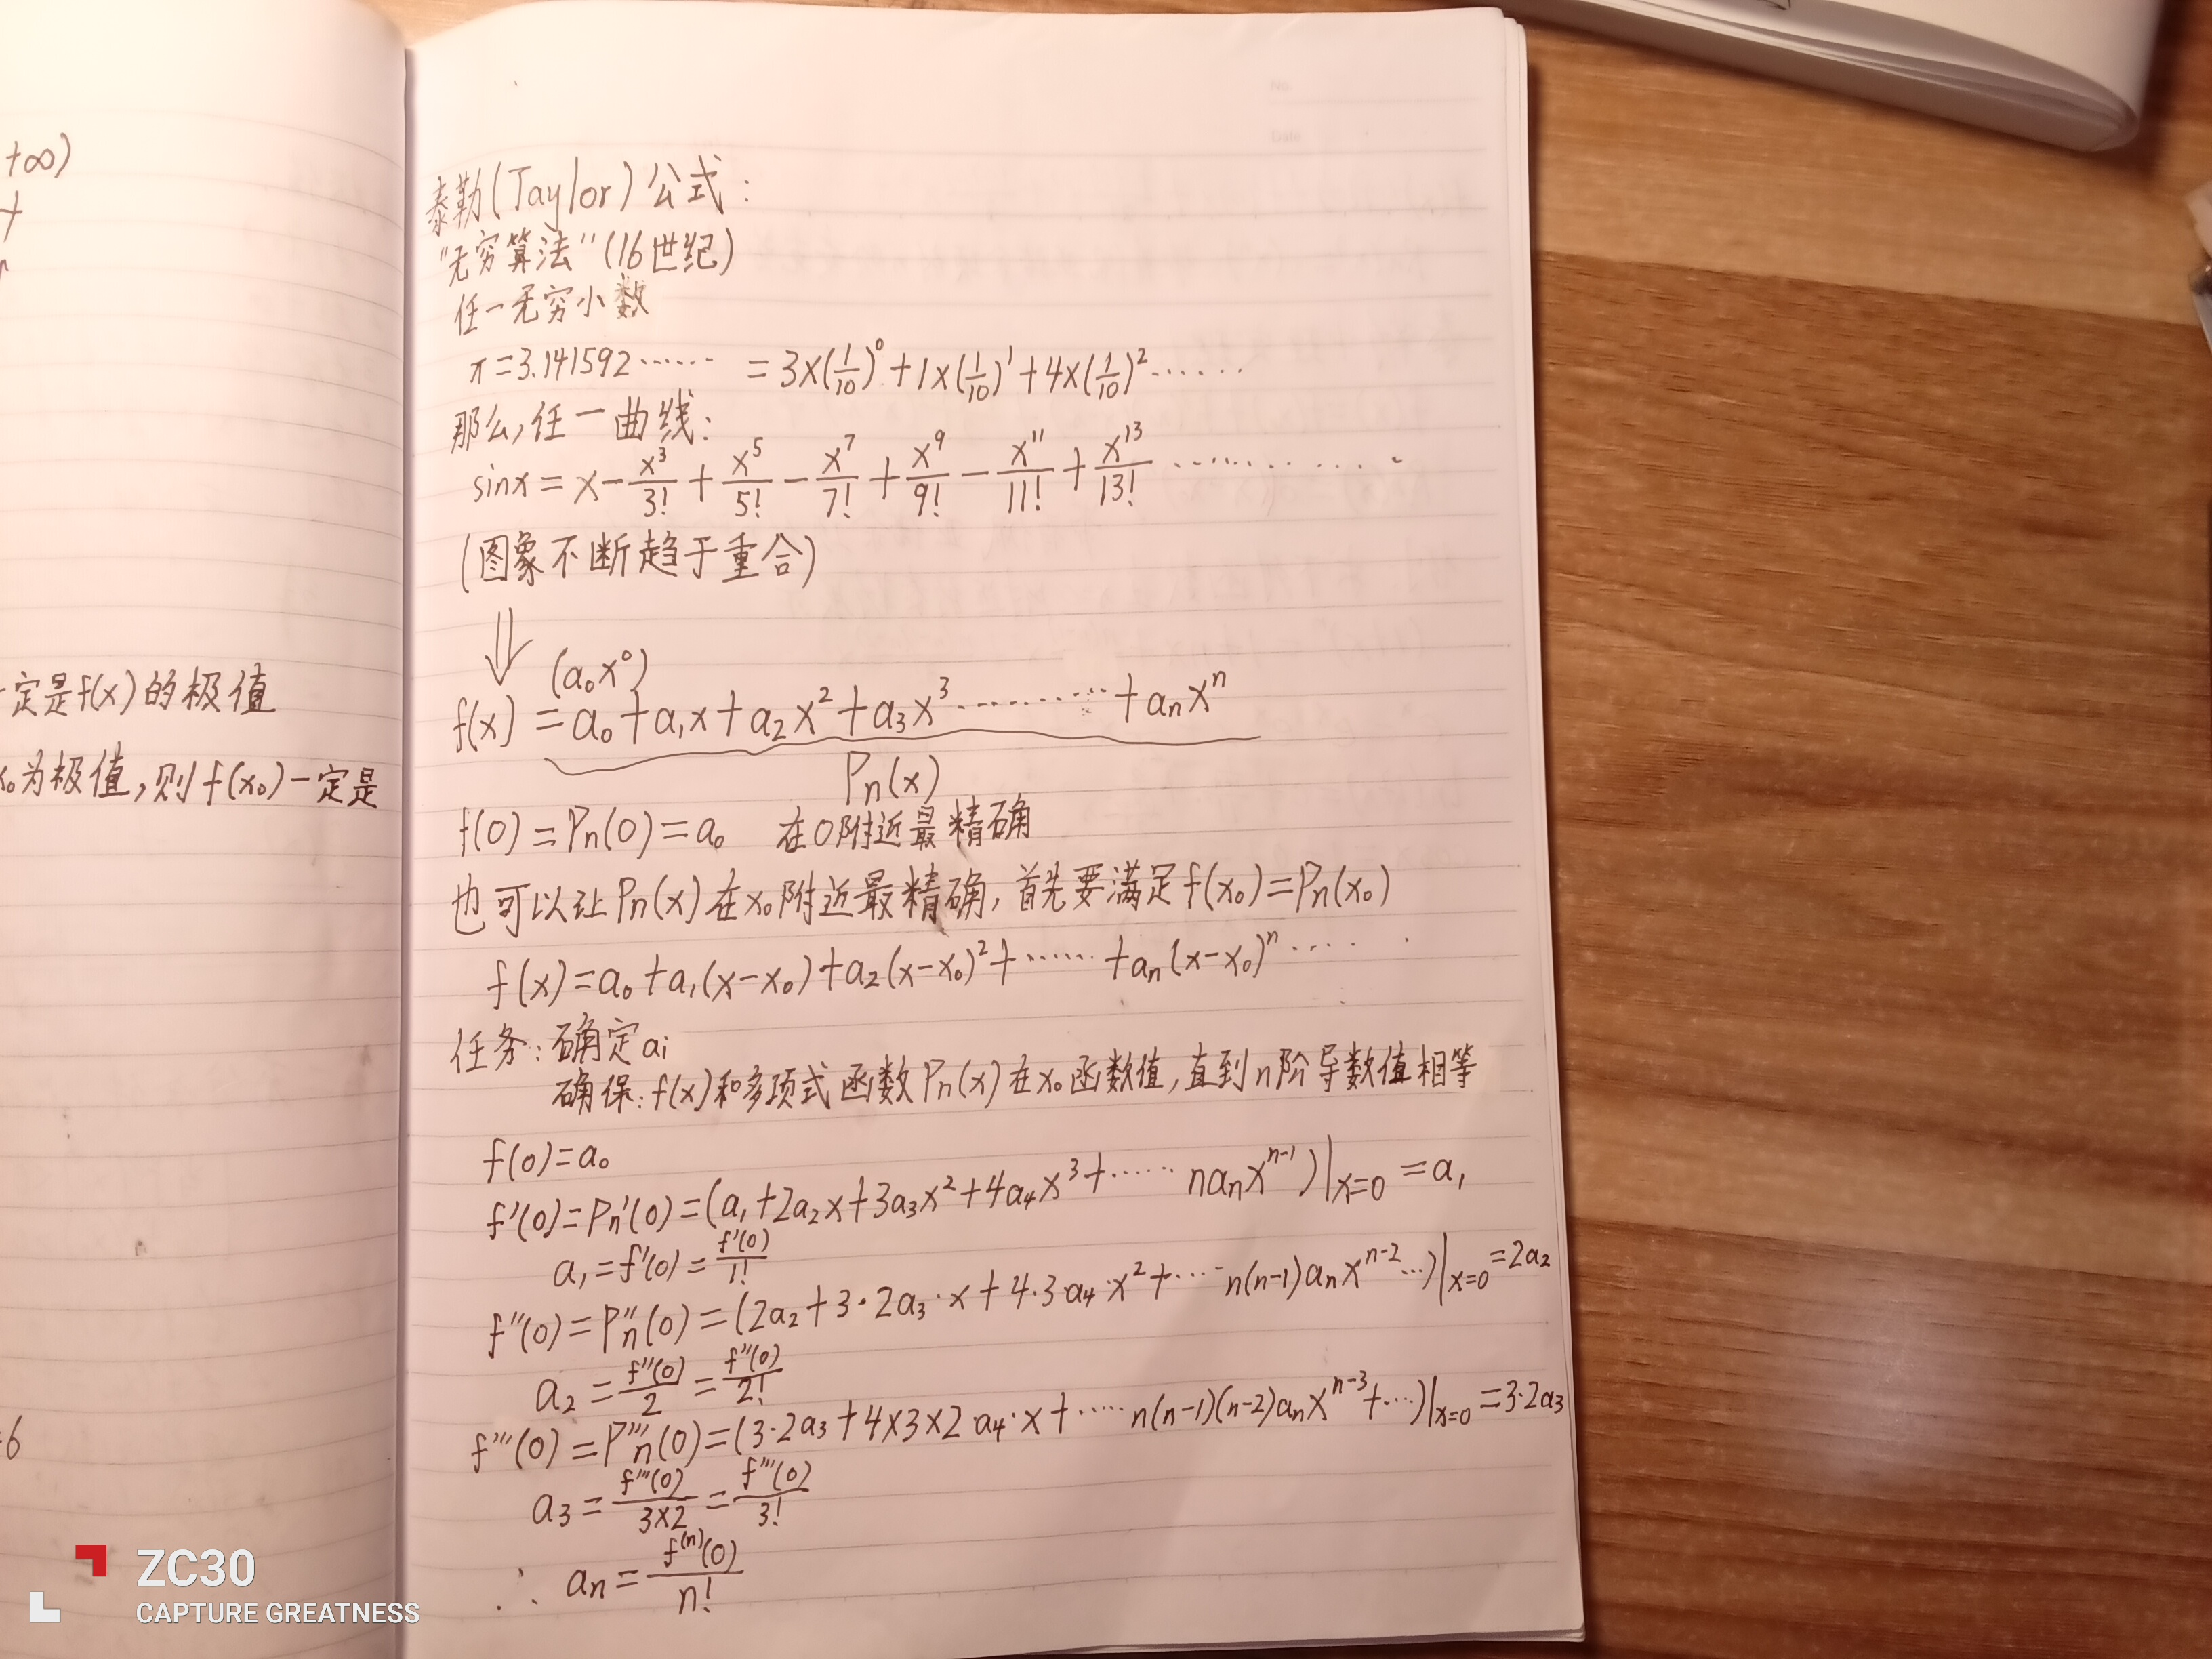 +∞)
一定是f(x)的极值
x₀为极值,则f(x₀)一定是
泰勒(Taylor)公式:
"无穷算法"(16世纪)
任一无穷小数
π=3.141592…… =3×(1/10)⁰+1×(1/10)¹+4×(1/10)²……
那么,任一曲线:
sinx=x-x³/3!+x⁵/5!-x⁷/7!+x⁹/9!-x¹¹/11!+x¹³/13!…………
(图象不断趋于重合)
⇓ (a₀x⁰)
f(x)=a₀+a₁x+a₂x²+a₃x³…………+aₙxⁿ
Pₙ(x)
f(0)=Pₙ(0)=a₀ 在0附近最精确
也可以让Pₙ(x)在x₀附近最精确,首先要满足f(x₀)=Pₙ(x₀)
f(x)=a₀+a₁(x-x₀)+a₂(x-x₀)²+……+aₙ(x-x₀)ⁿ……
任务:确定ai
确保:f(x)和多项式函数Pₙ(x)在x₀函数值,直到n阶导数值相等
f(0)=a₀
f'(0)=Pₙ'(0)=(a₁+2a₂x+3a₃x²+4a₄x³+……naₙxⁿ⁻¹)|x=0=a₁
a₁=f'(0)=f'(0)/1!
f''(0)=P''ₙ(0)=(2a₂+3·2a₃·x+4·3·a₄·x²+……n(n-1)aₙxⁿ⁻²…)|x=0=2a₂
a₂=f''(0)/2=f''(0)/2!
f'''(0)=P'''ₙ(0)=(3·2a₃+4×3×2·a₄·x+……n(n-1)(n-2)aₙxⁿ⁻³+…)|x=0=3·2a₃
a₃=f'''(0)/3×2=f'''(0)/3!
∴ aₙ=f⁽ⁿ⁾(0)/n!
ZC30
CAPTURE GREATNESS